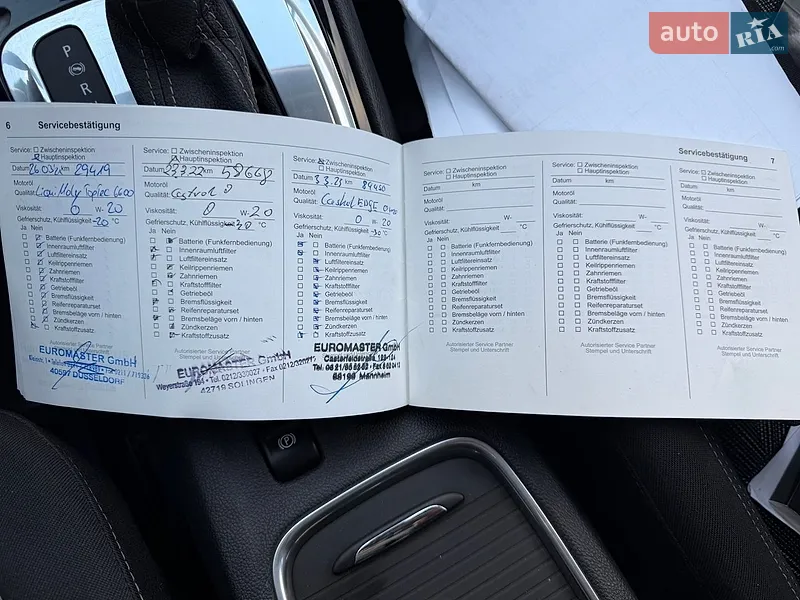 auto RIA .com
P
R
6 Servicebestätigung
Service: Zwischeninspektion
Hauptinspektion
Datum km 29419
Motoröl
Qualität Liqui Moly TopTec 6600
Viskosität: 0 W- 20
Gefrierschutz, Kühlflüssigkeit -20 °C
Ja Nein
Batterie (Funkfernbedienung)
Innenraumluftfilter
Luftfiltereinsatz
Keilrippenriemen
Zahnriemen
Kraftstofffilter
Getriebeöl
Bremsflüssigkeit
Reifenreparaturset
Bremsbeläge vorn / hinten
Zündkerzen
Kraftstoffzusatz
EUROMASTER GmbH
40597 DÜSSELDORF
Service: Zwischeninspektion
Hauptinspektion
Datum 23.3.22 km 58668
Motoröl
Qualität: Castrol
Viskosität: 0 W- 20
Gefrierschutz, Kühlflüssigkeit °C
Ja Nein
Batterie (Funkfernbedienung)
Innenraumluftfilter
Luftfiltereinsatz
Keilrippenriemen
Zahnriemen
Kraftstofffilter
Getriebeöl
Bremsflüssigkeit
Reifenreparaturset
Bremsbeläge vorn / hinten
Zündkerzen
Kraftstoffzusatz
Autorisierter Service Partner
EUROMASTER GmbH
Weyerstraße 194 • Tel. 0212/330027 • Fax 0212/320
42719 SOLINGEN
Service: Zwischeninspektion
Hauptinspektion
Datum km 84450
Motoröl
Qualität: Castrol EDGE
Viskosität: 0 W- 20
Gefrierschutz, Kühlflüssigkeit -30 °C
Ja Nein
Batterie (Funkfernbedienung)
Innenraumluftfilter
Luftfiltereinsatz
Keilrippenriemen
Zahnriemen
Kraftstofffilter
Getriebeöl
Bremsflüssigkeit
Reifenreparaturset
Bremsbeläge vorn / hinten
Zündkerzen
Kraftstoffzusatz
EUROMASTER GmbH
Casterfeldstraße
Mannheim
Servicebestätigung 7
Service: Zwischeninspektion
Hauptinspektion
Datum km
Motoröl
Qualität:
Viskosität: W-
Gefrierschutz, Kühlflüssigkeit °C
Ja Nein
Batterie (Funkfernbedienung)
Innenraumluftfilter
Luftfiltereinsatz
Keilrippenriemen
Zahnriemen
Kraftstofffilter
Getriebeöl
Bremsflüssigkeit
Reifenreparaturset
Bremsbeläge vorn / hinten
Zündkerzen
Kraftstoffzusatz
Autorisierter Service Partner
Stempel und Unterschrift
Service: Zwischeninspektion
Hauptinspektion
Datum km
Motoröl
Qualität:
Viskosität: W-
Gefrierschutz, Kühlflüssigkeit °C
Ja Nein
Batterie (Funkfernbedienung)
Innenraumluftfilter
Luftfiltereinsatz
Keilrippenriemen
Zahnriemen
Kraftstofffilter
Getriebeöl
Bremsflüssigkeit
Reifenreparaturset
Bremsbeläge vorn / hinten
Zündkerzen
Kraftstoffzusatz
Autorisierter Service Partner
Stempel und Unterschrift
Service: Zwischeninspektion
Hauptinspektion
Datum km
Motoröl
Qualität:
Viskosität: W-
Gefrierschutz, Kühlflüssigkeit °C
Ja Nein
Batterie (Funkfernbedienung)
Innenraumluftfilter
Luftfiltereinsatz
Keilrippenriemen
Zahnriemen
Kraftstofffilter
Getriebeöl
Bremsflüssigkeit
Reifenreparaturset
Bremsbeläge vorn / hinten
Zündkerzen
Kraftstoffzusatz
Autorisierter Service Partner
Stempel und Unterschrift